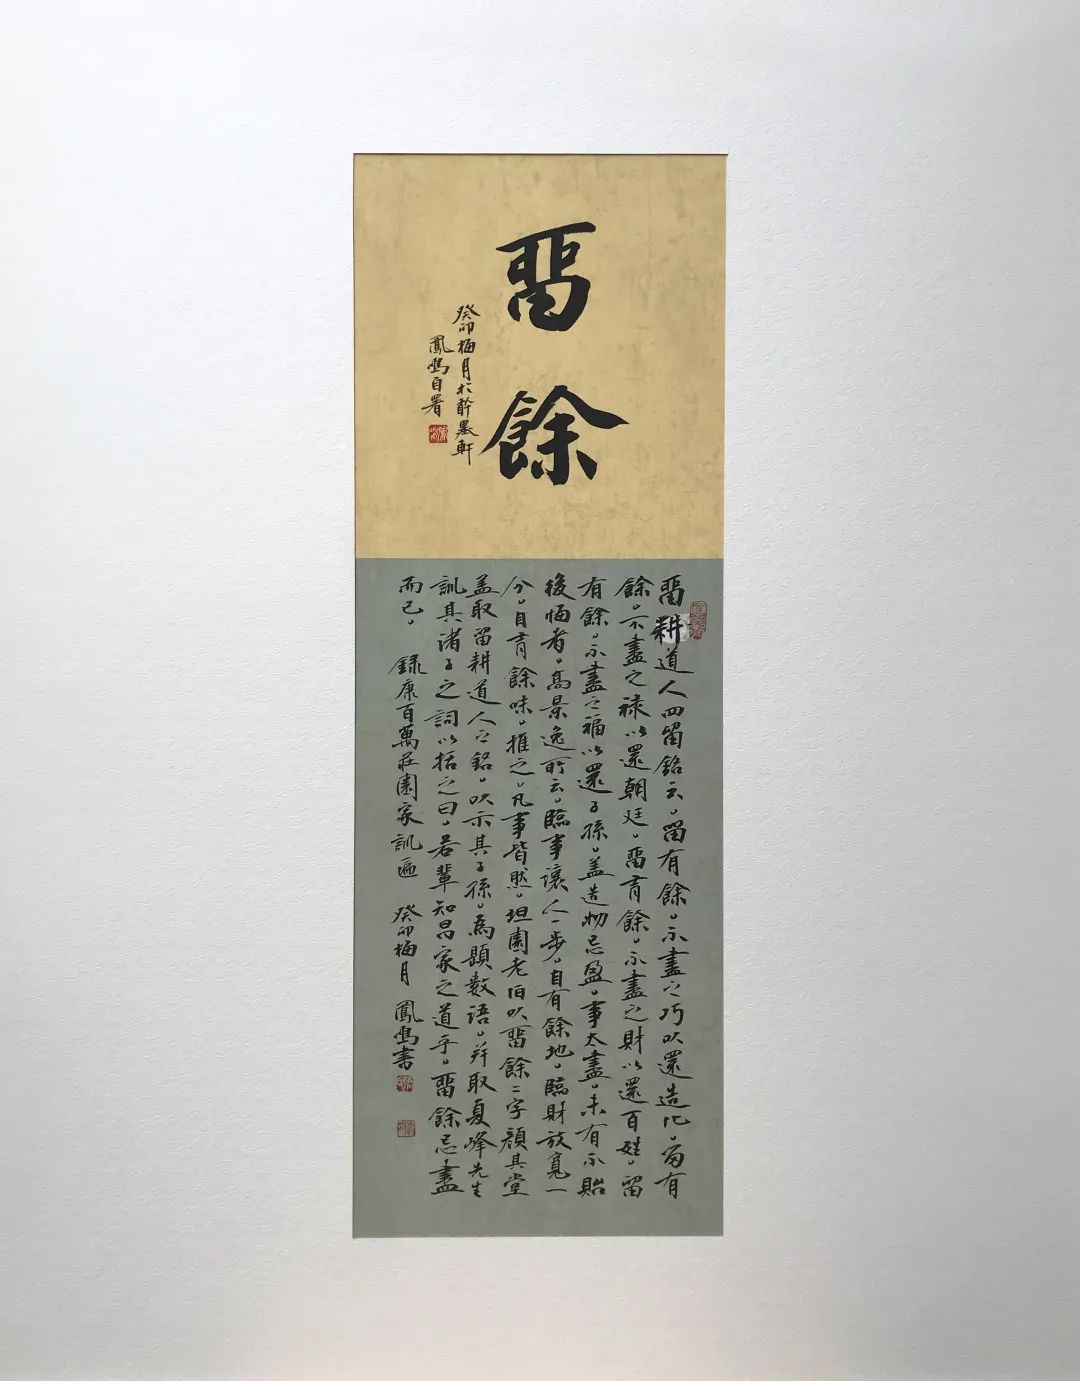 畱餘
癸卯梅月於酔墨軒
鳳鳴自署
畱耕道人四留銘云。留有餘。不盡之巧以還造化。留有
餘。不盡之禄以還朝廷。畱有餘。不盡之財以還百姓。留
有餘。不盡之福以還子孫。盖造物忌盈。事太盡。未有不貽
後悔者。高景逸所云。臨事讓人一步。自有餘地。臨財放寬一
分。自有餘味。推之。凡事皆然。坦園老伯以畱餘二字顏其堂
盖取留耕道人之銘。以示其子孫。爲題數語。并取夏峰先生
訓其諸子之詞以括之曰。若輩知昌家之道乎。畱餘忌盡
而已。 録康百萬莊園家訓遍 癸卯梅月 鳳鳴書